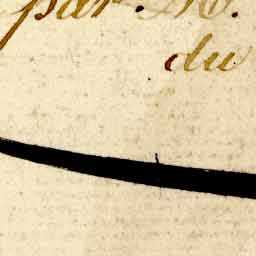 par M.
du